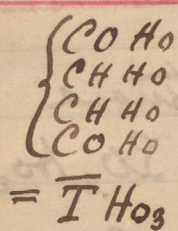 CO Ho
CH Ho
CH Ho
CO Ho
= T̅ Ho₃